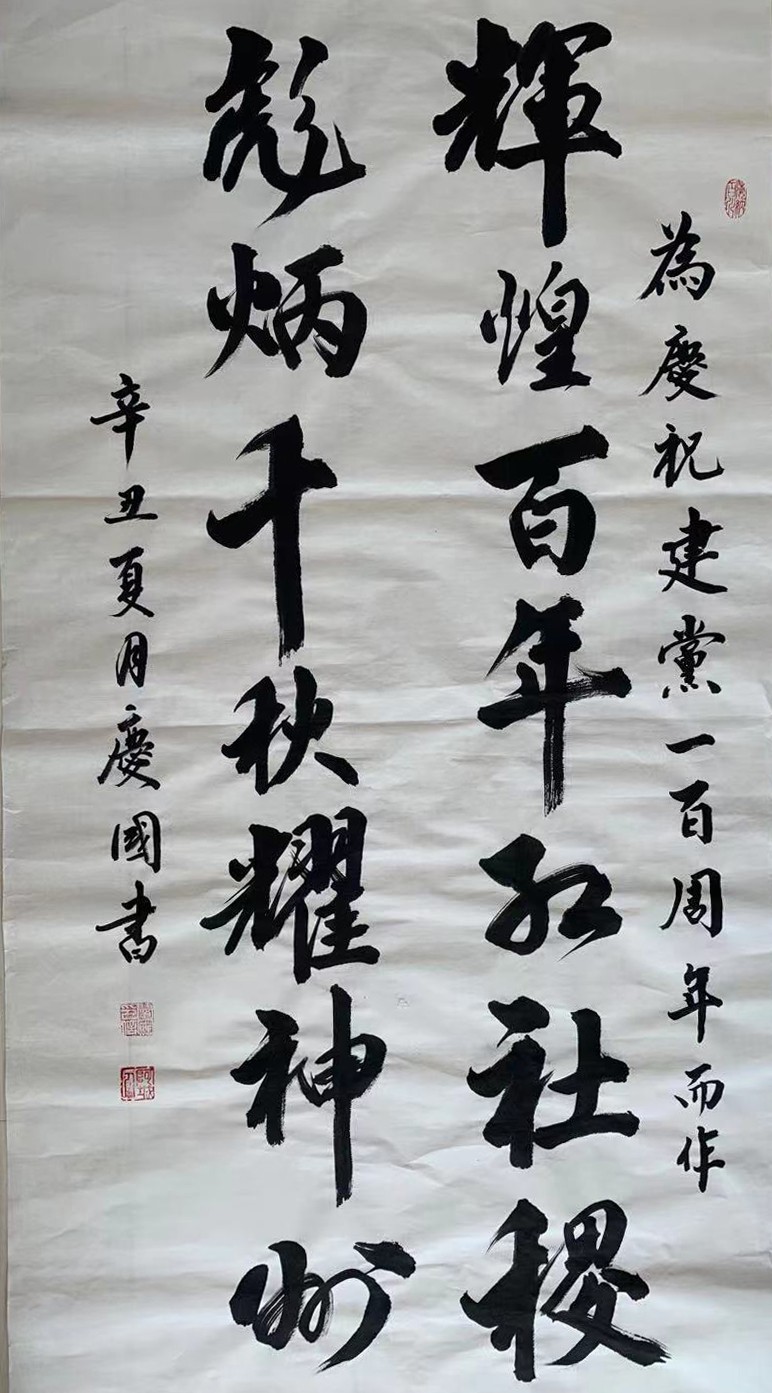 為慶祝建黨一百周年而作
輝煌百年红社稷
彪炳千秋耀神州
辛丑夏月慶國書